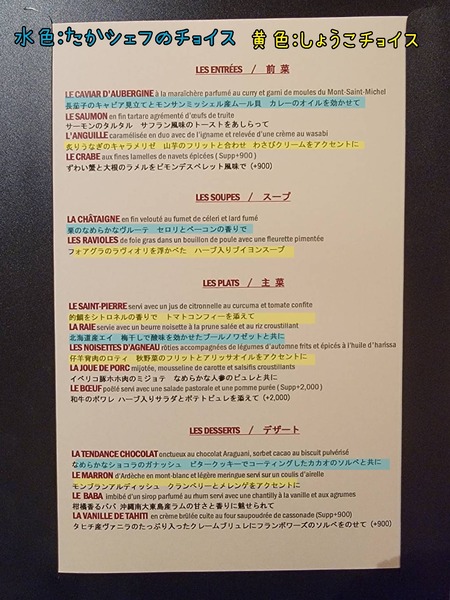 水色:たかシェフのチョイス 黄色:しょうこチョイス
LES ENTRÉES / 前菜
LE CAVIAR D'AUBERGINE à la maraîchère parfumé au curry et garni de moules du Mont-Saint-Michel
長茄子のキャビア見立てとモンサンミッシェル産ムール貝 カレーのオイルを効かせて
LE SAUMON en fin tartare agrémenté d'œufs de truite
サーモンのタルタル サフラン風味のトーストをあしらって
L'ANGUILLE caramélisée en duo avec de l'igname et relevée d'une crème au wasabi
炙りうなぎのキャラメリゼ 山芋のフリットと合わせ わさびクリームをアクセントに
LE CRABE aux fines lamelles de navets épicées (Supp+900)
ずわい蟹と大根のラメルをピモンデスペレット風味で (+900)
LES SOUPES / スープ
LA CHÂTAIGNE en fin velouté au fumet de céleri et lard fumé
栗のなめらかなヴルーテ セロリとベーコンの香りで
LES RAVIOLES de foie gras dans un bouillon de poule avec une fleurette pimentée
フォアグラのラヴィオリを浮かべた ハーブ入りブイヨンスープ
LES PLATS / 主菜
LE SAINT-PIERRE servi avec un jus de citronnelle au curcuma et tomate confite
的鯛をシトロネルの香りで トマトコンフィーを添えて
LA RAIE servie avec un beurre noisette à la prune salée et au riz croustillant
北海道産エイ 梅干しで酸味を効かせたブールノワゼットと共に
LES NOISETTES D'AGNEAU rôties accompagnées de légumes d'automne frits et épicés à l'huile d'harissa
仔羊背肉のロティ 秋野菜のフリットとアリッサオイルをアクセントに
LA JOUE DE PORC mijotée, mousseline de carotte et salsifis croustillants
イベリコ豚ホホ肉のミジョテ なめらかな人参のピュレと共に
LE BŒUF poêlé servi avec une salade pastorale et une pomme purée (Supp+2,000)
和牛のポワレ ハーブ入りサラダとポテトピュレを添えて (+2,000)
LES DESSERTS / デザート
LA TENDANCE CHOCOLAT onctueux au chocolat Araguani, sorbet cacao au biscuit pulvérisé
なめらかなショコラのガナッシュ ビタークッキーでコーティングしたカカオのソルベと共に
LE MARRON d'Ardèche en mont-blanc et légère meringue servi sur un coulis d'airelle
モンブランアルディッシュ クランベリーとメレンゲをアクセントに
LE BABA imbibé d'un sirop parfumé au rhum servi avec une chantilly à la vanille et aux agrumes
柑橘香るババ 沖縄南大東島産ラムの甘さと香りに魅せられて
LA VANILLE DE TAHITI en crème brûlée cuite au four saupoudrée de cassonade (Supp+900)
タヒチ産ヴァニラのたっぷり入ったクレームブリュレにフランボワーズのソルベをのせて (+900)